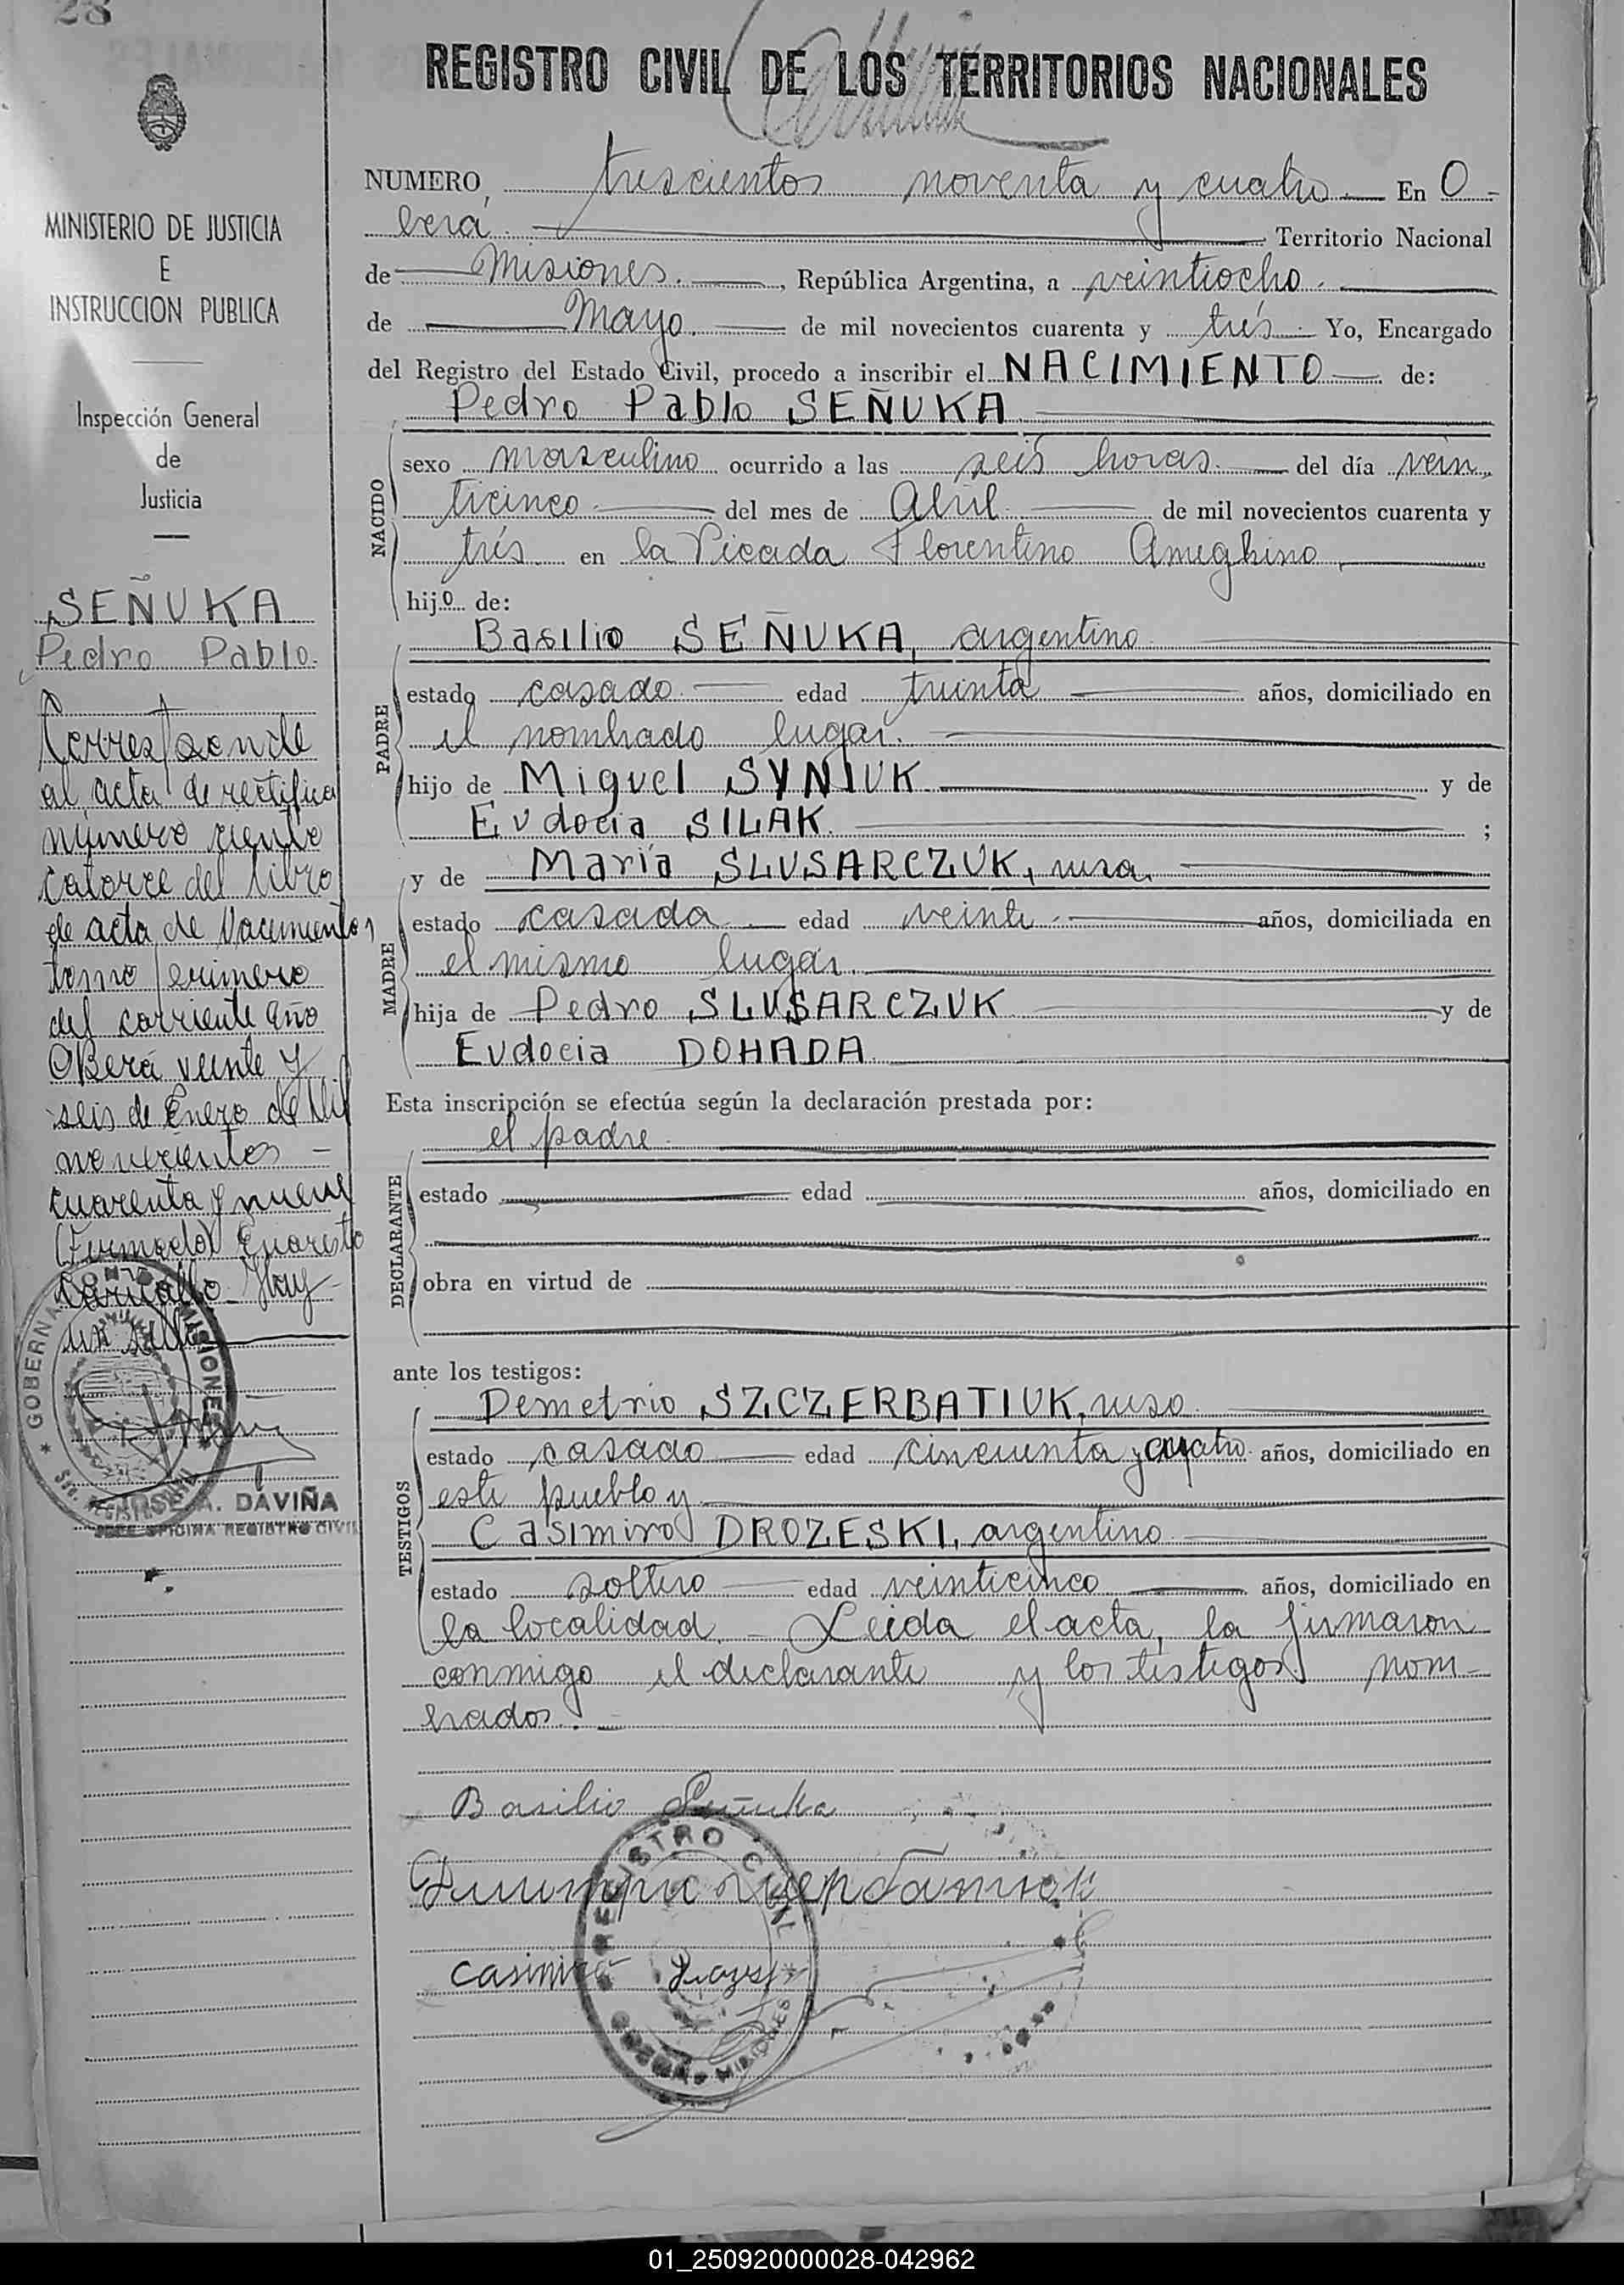 28
REGISTRO CIVIL DE LOS TERRITORIOS NACIONALES
MINISTERIO DE JUSTICIA
E
INSTRUCCION PUBLICA
Inspección General
de
Justicia
SEÑUKA
Pedro Pablo.
Corresponde
al acta de rectifica
número ciento
catorce del libro
de acta de Nacimientos
tomo primero
del corriente año
Oberá veinte y
seis de Enero de Mil
novecientos –
cuarenta y nueve
(Firmado) Evaristo
Hay
un sello
GOBERNA MISIONES
JOSE A. DAVIÑA
JEFE OFICINA REGISTRO CIVIL
NUMERO trescientos noventa y cuatro.— En O-
berá. Territorio Nacional
de Misiones. , República Argentina, a veintiocho.
de Mayo. de mil novecientos cuarenta y trés. Yo, Encargado
del Registro del Estado Civil, procedo a inscribir el NACIMIENTO — de:
Pedro Pablo SEÑUKA.
NACIDO
sexo masculino ocurrido a las seis horas. — del día vein
ticinco. del mes de Abril de mil novecientos cuarenta y
trés. en la Picada Florentino Ameghino
hijo de:
PADRE
Basilio SEÑUKA, argentino
estado casado. edad treinta años, domiciliado en
el nombrado lugar.
hijo de Miguel SYNIUK y de
Eudocia SILAK. ;
MADRE
y de María SLUSARCZUK, rusa.
estado casada edad veinte. años, domiciliada en
el mismo lugar.
hija de Pedro SLUSARCZUK y de
Eudocia DOHADA
Esta inscripción se efectúa según la declaración prestada por:
DECLARANTE
el padre.
estado edad años, domiciliado en
obra en virtud de
ante los testigos:
TESTIGOS
Demetrio SZCZERBATIUK, ruso
estado casado edad cincuenta y cuatro años, domiciliado en
este pueblo y
Casimiro DROZESKI, argentino
estado soltero edad veinticinco años, domiciliado en
la localidad. – Leida el acta, la firmaron
conmigo el declarante y los testigos nom-
brados. –
Basilio Señuka
REGISTRO CIVIL
MISIONES
Casimiro
01_250920000028-042962